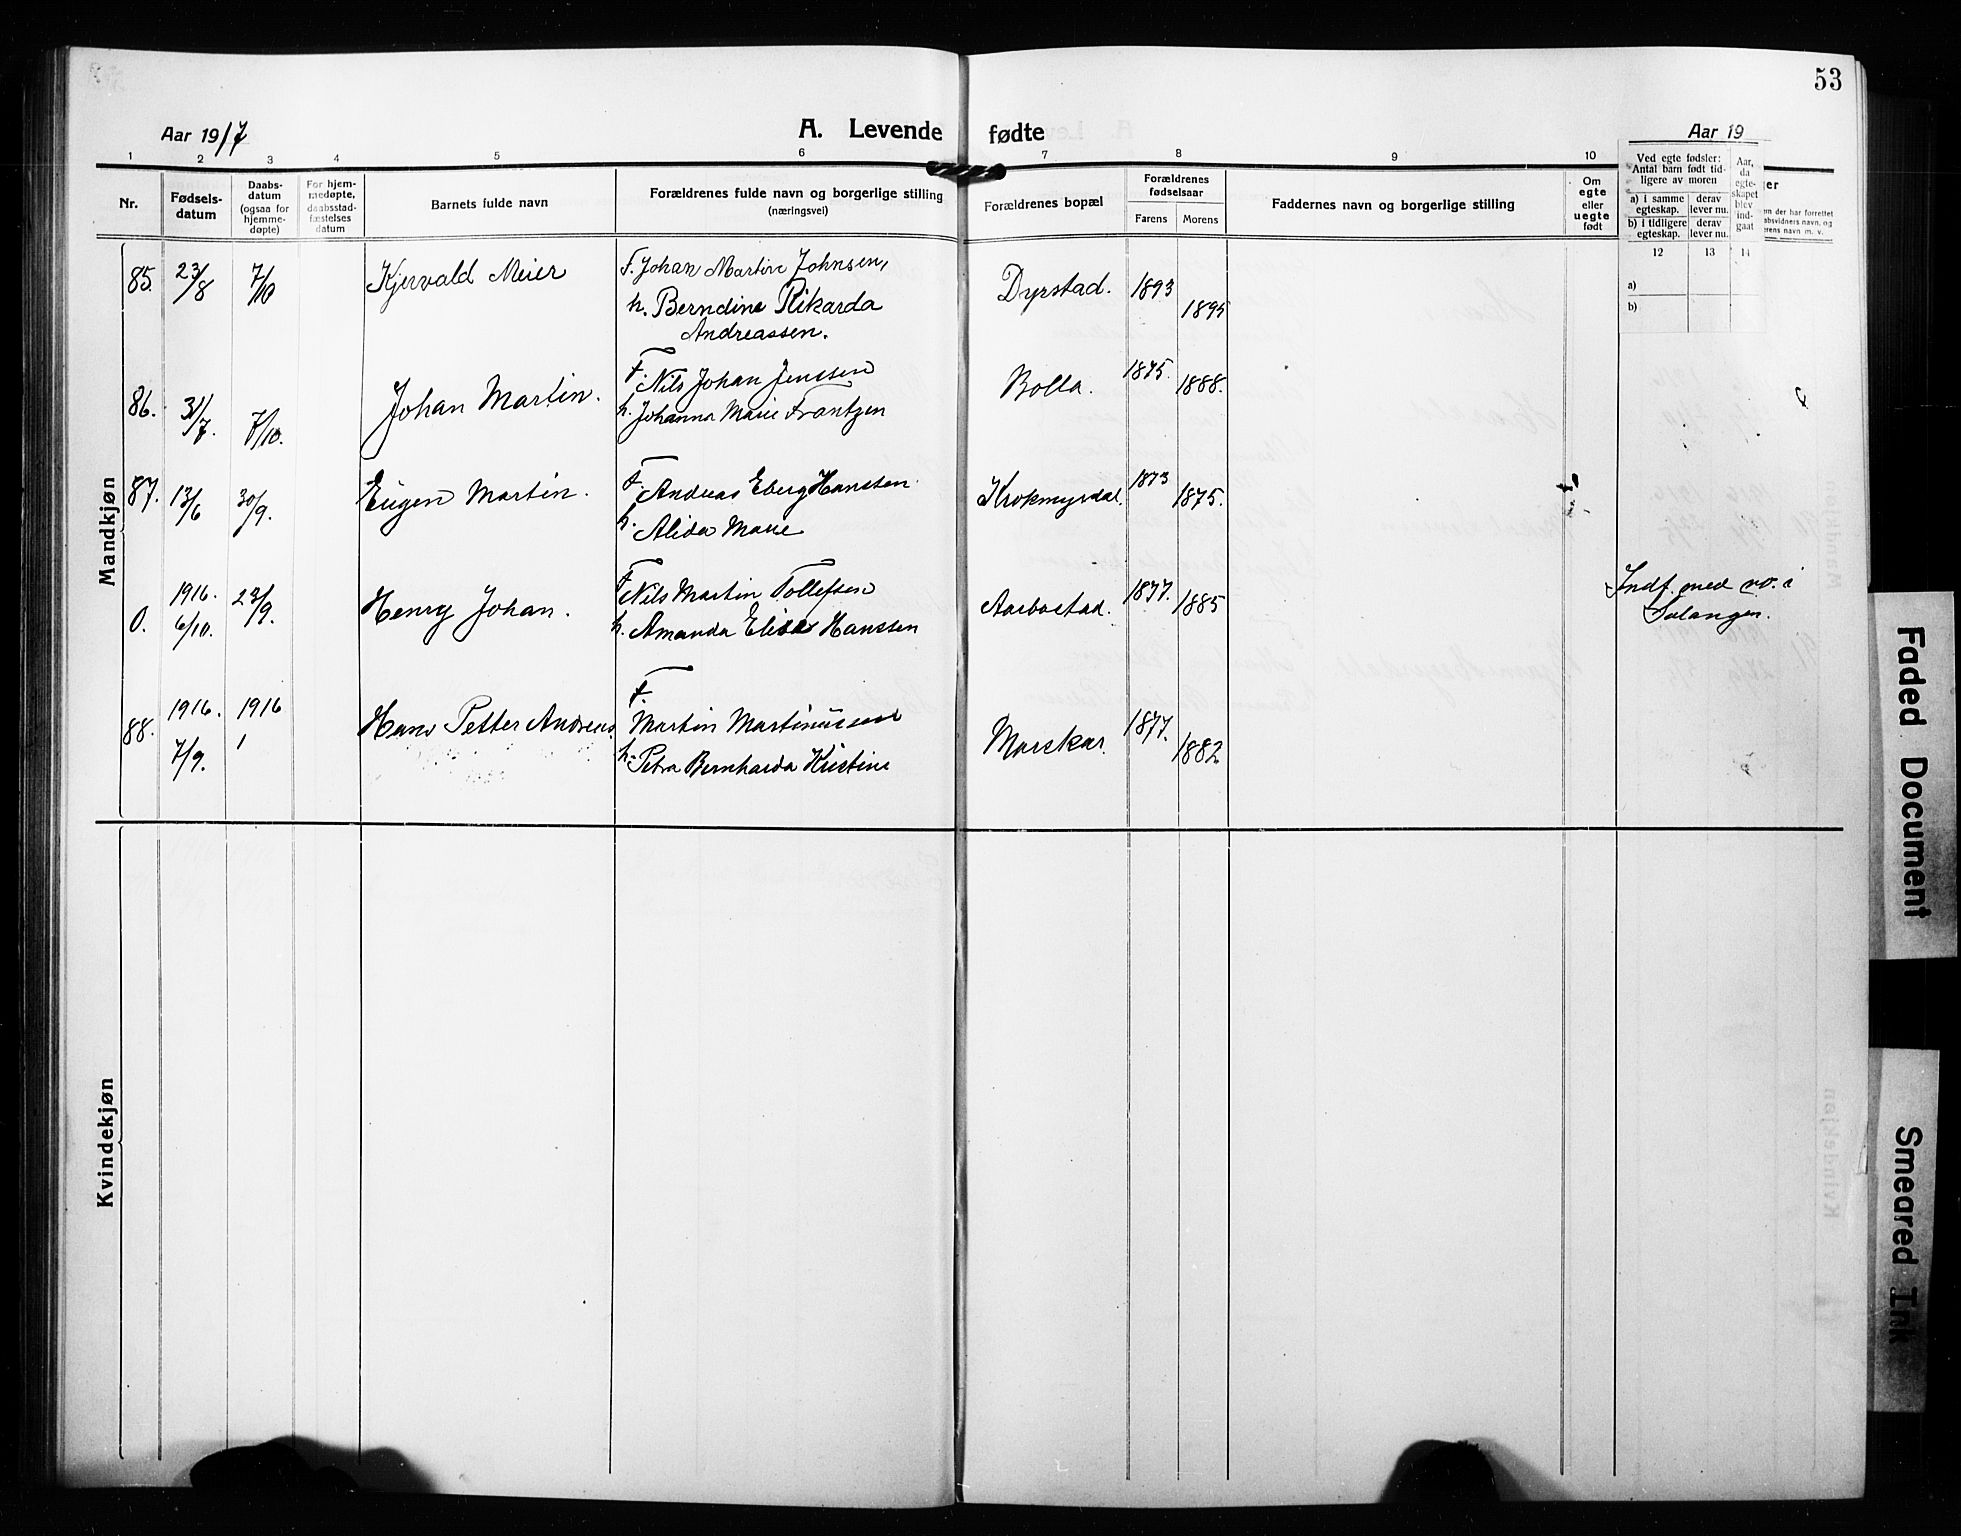 53
Aar 1917
A. Levende fødte
Aar 19
1 2 3 4 5 6 7 8 9 10
Nr.
Fødsels-
datum
Daabs-
datum
(ogsaa for
hjemme-
døpte)
For hjem-
medøpte,
daabsstad-
fæstelses
datum
Barnets fulde navn
Forældrenes fulde navn og borgerlige stilling
(næringsvei)
Forældrenes bopæl
Forældrenes
fødselsaar
Farens
Morens
Faddernes navn og borgerlige stilling
Om
egte
eller
uegte
født
Ved egte fødsler:
Antal barn født tid-
ligere av moren
a) i samme
egteskap.
derav
lever nu.
b) i tidligere
egteskap.
derav
lever nu.
Aar,
da
egte-
skapet
blev
ind-
gaat
12 13 14
a)
b)
ger
en der har forrettet
absvidners navn, og
erens navn m. v.
Mandkjøn
85. 23/8 7/10 Kjervald Meier
F. Johan Martin Johnsen,
h. Berndine Rikarda
Andreassen.
Dyrstad. 1893 1895
86. 31/7. 7/10. Johan Martin.
F. Nils Johan Jenssen
h. Johanna Marie Frantzen
Bolla. 1875. 1888.
87. 13/6 30/9. Eugen Martin.
F. Andreas Eberg Hanssen.
h. Alida Marie
Krokmyrdal. 1873 1875.
0. 1916. 6/10. 23/9. Henry Johan.
F. Nils Martin Tollefsen
h. Amanda Elise Hanssen
Aarbostad. 1877. 1885
Indf. med no. i
Salangen.
88. 1916. 7/9. 1916 Hans Petter Andreas
F.
Martin Martinussen
h. Petra Bernharda Kristine
Marskar. 1877. 1882
Kvindekjøn
Faded Document
Smeared Ink